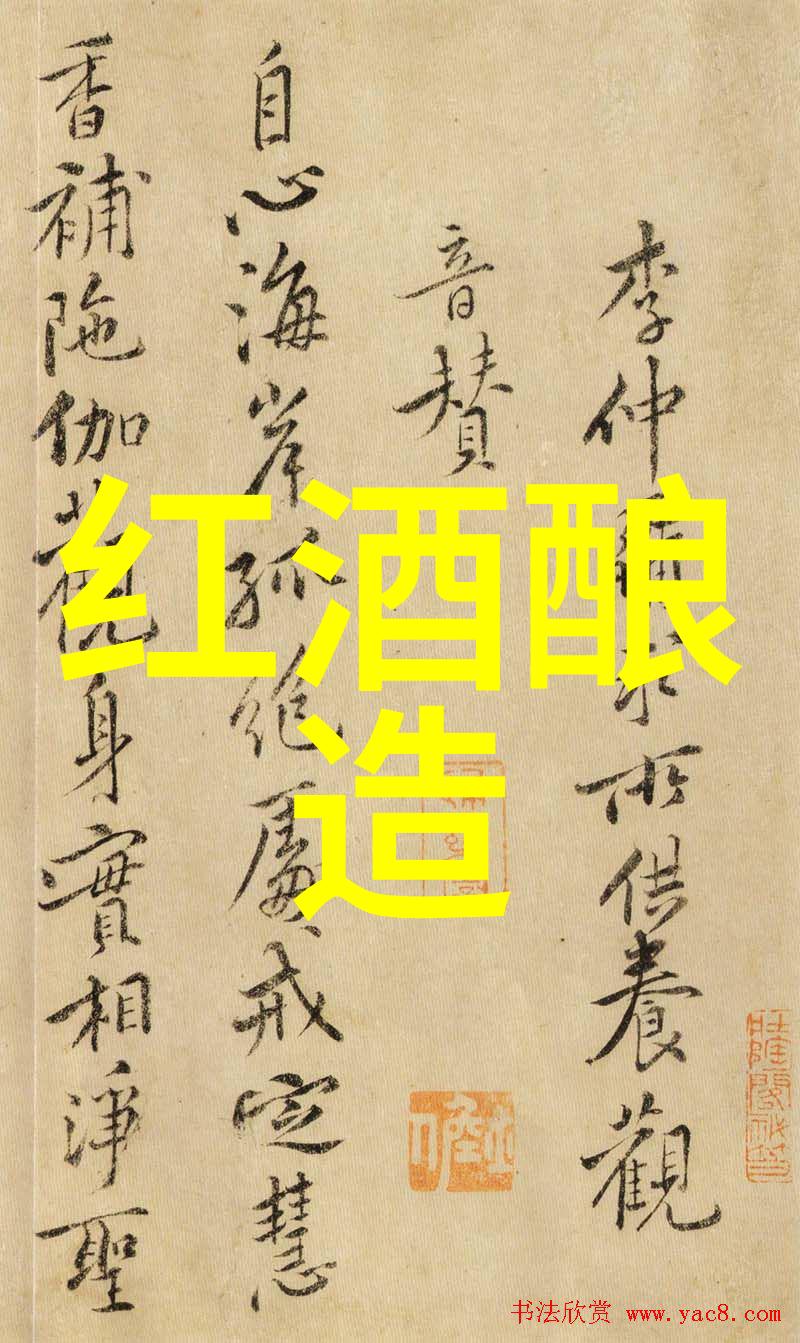 李仲求所供養觀
音賛
自心海岸孤絶處戒定慧
香補陁伽觀身實相淨聖
红酒酿
造
书法欣赏 www.yac8.com